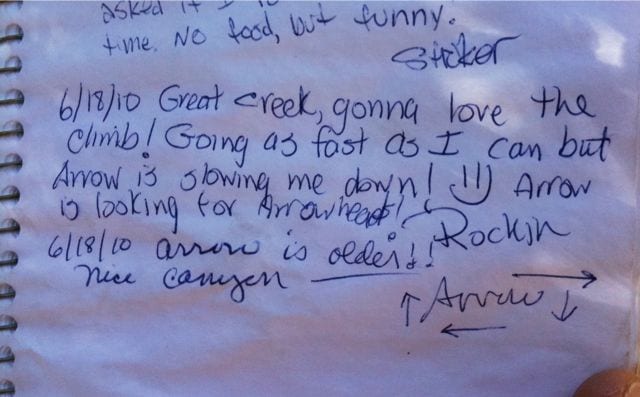 asked if I
time. No food, but funny.
Sticker
6/18/10 Great creek, gonna love the
climb! Going as fast as I can but
Arrow is slowing me down! Arrow
is looking for Arrowheads!
Rockin
6/18/10 arrow is older!!
nice canyon
Arrow